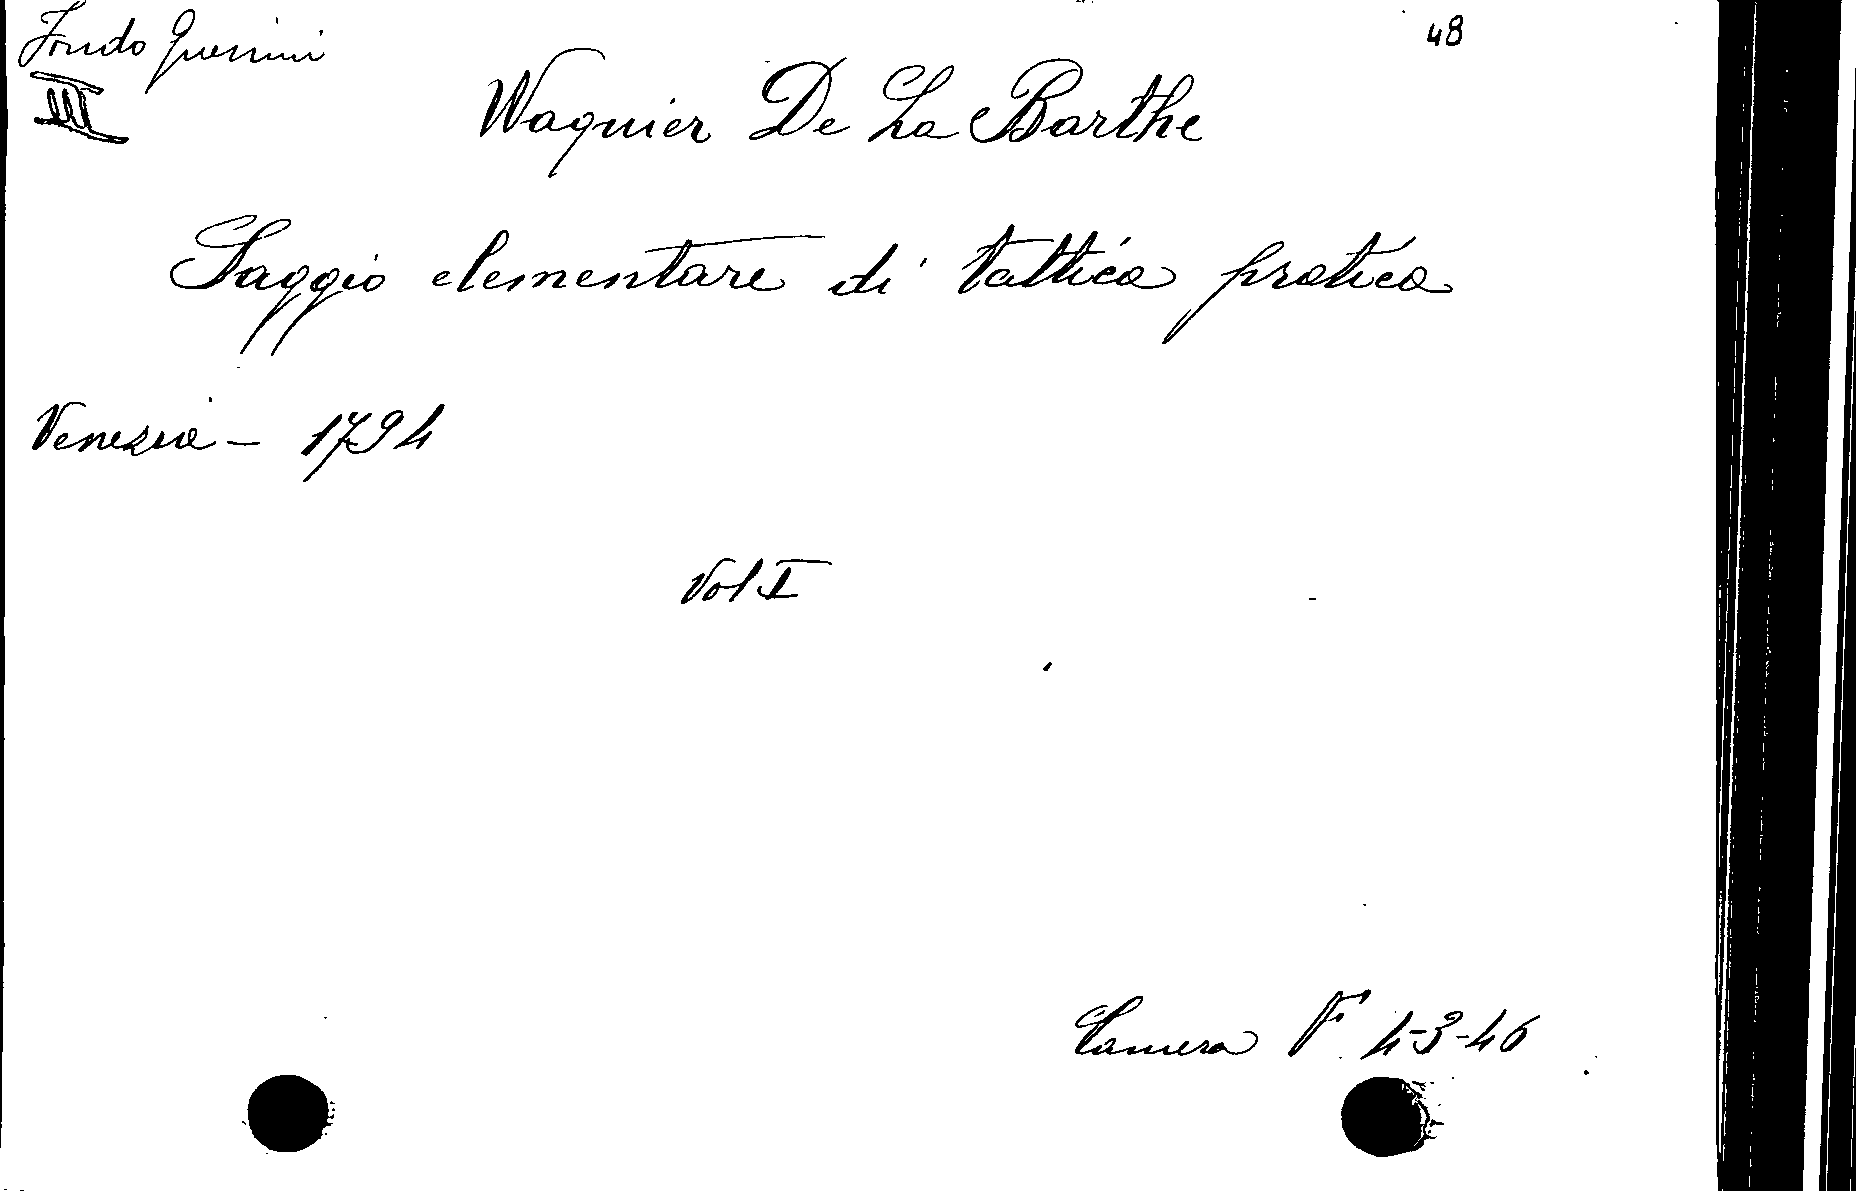 Fondo Guerrini
48
III
Waquier De La Barthe
Saggio elementare di tattica pratica
Venezia - 1794
Vol I
Camera F 4-3-46